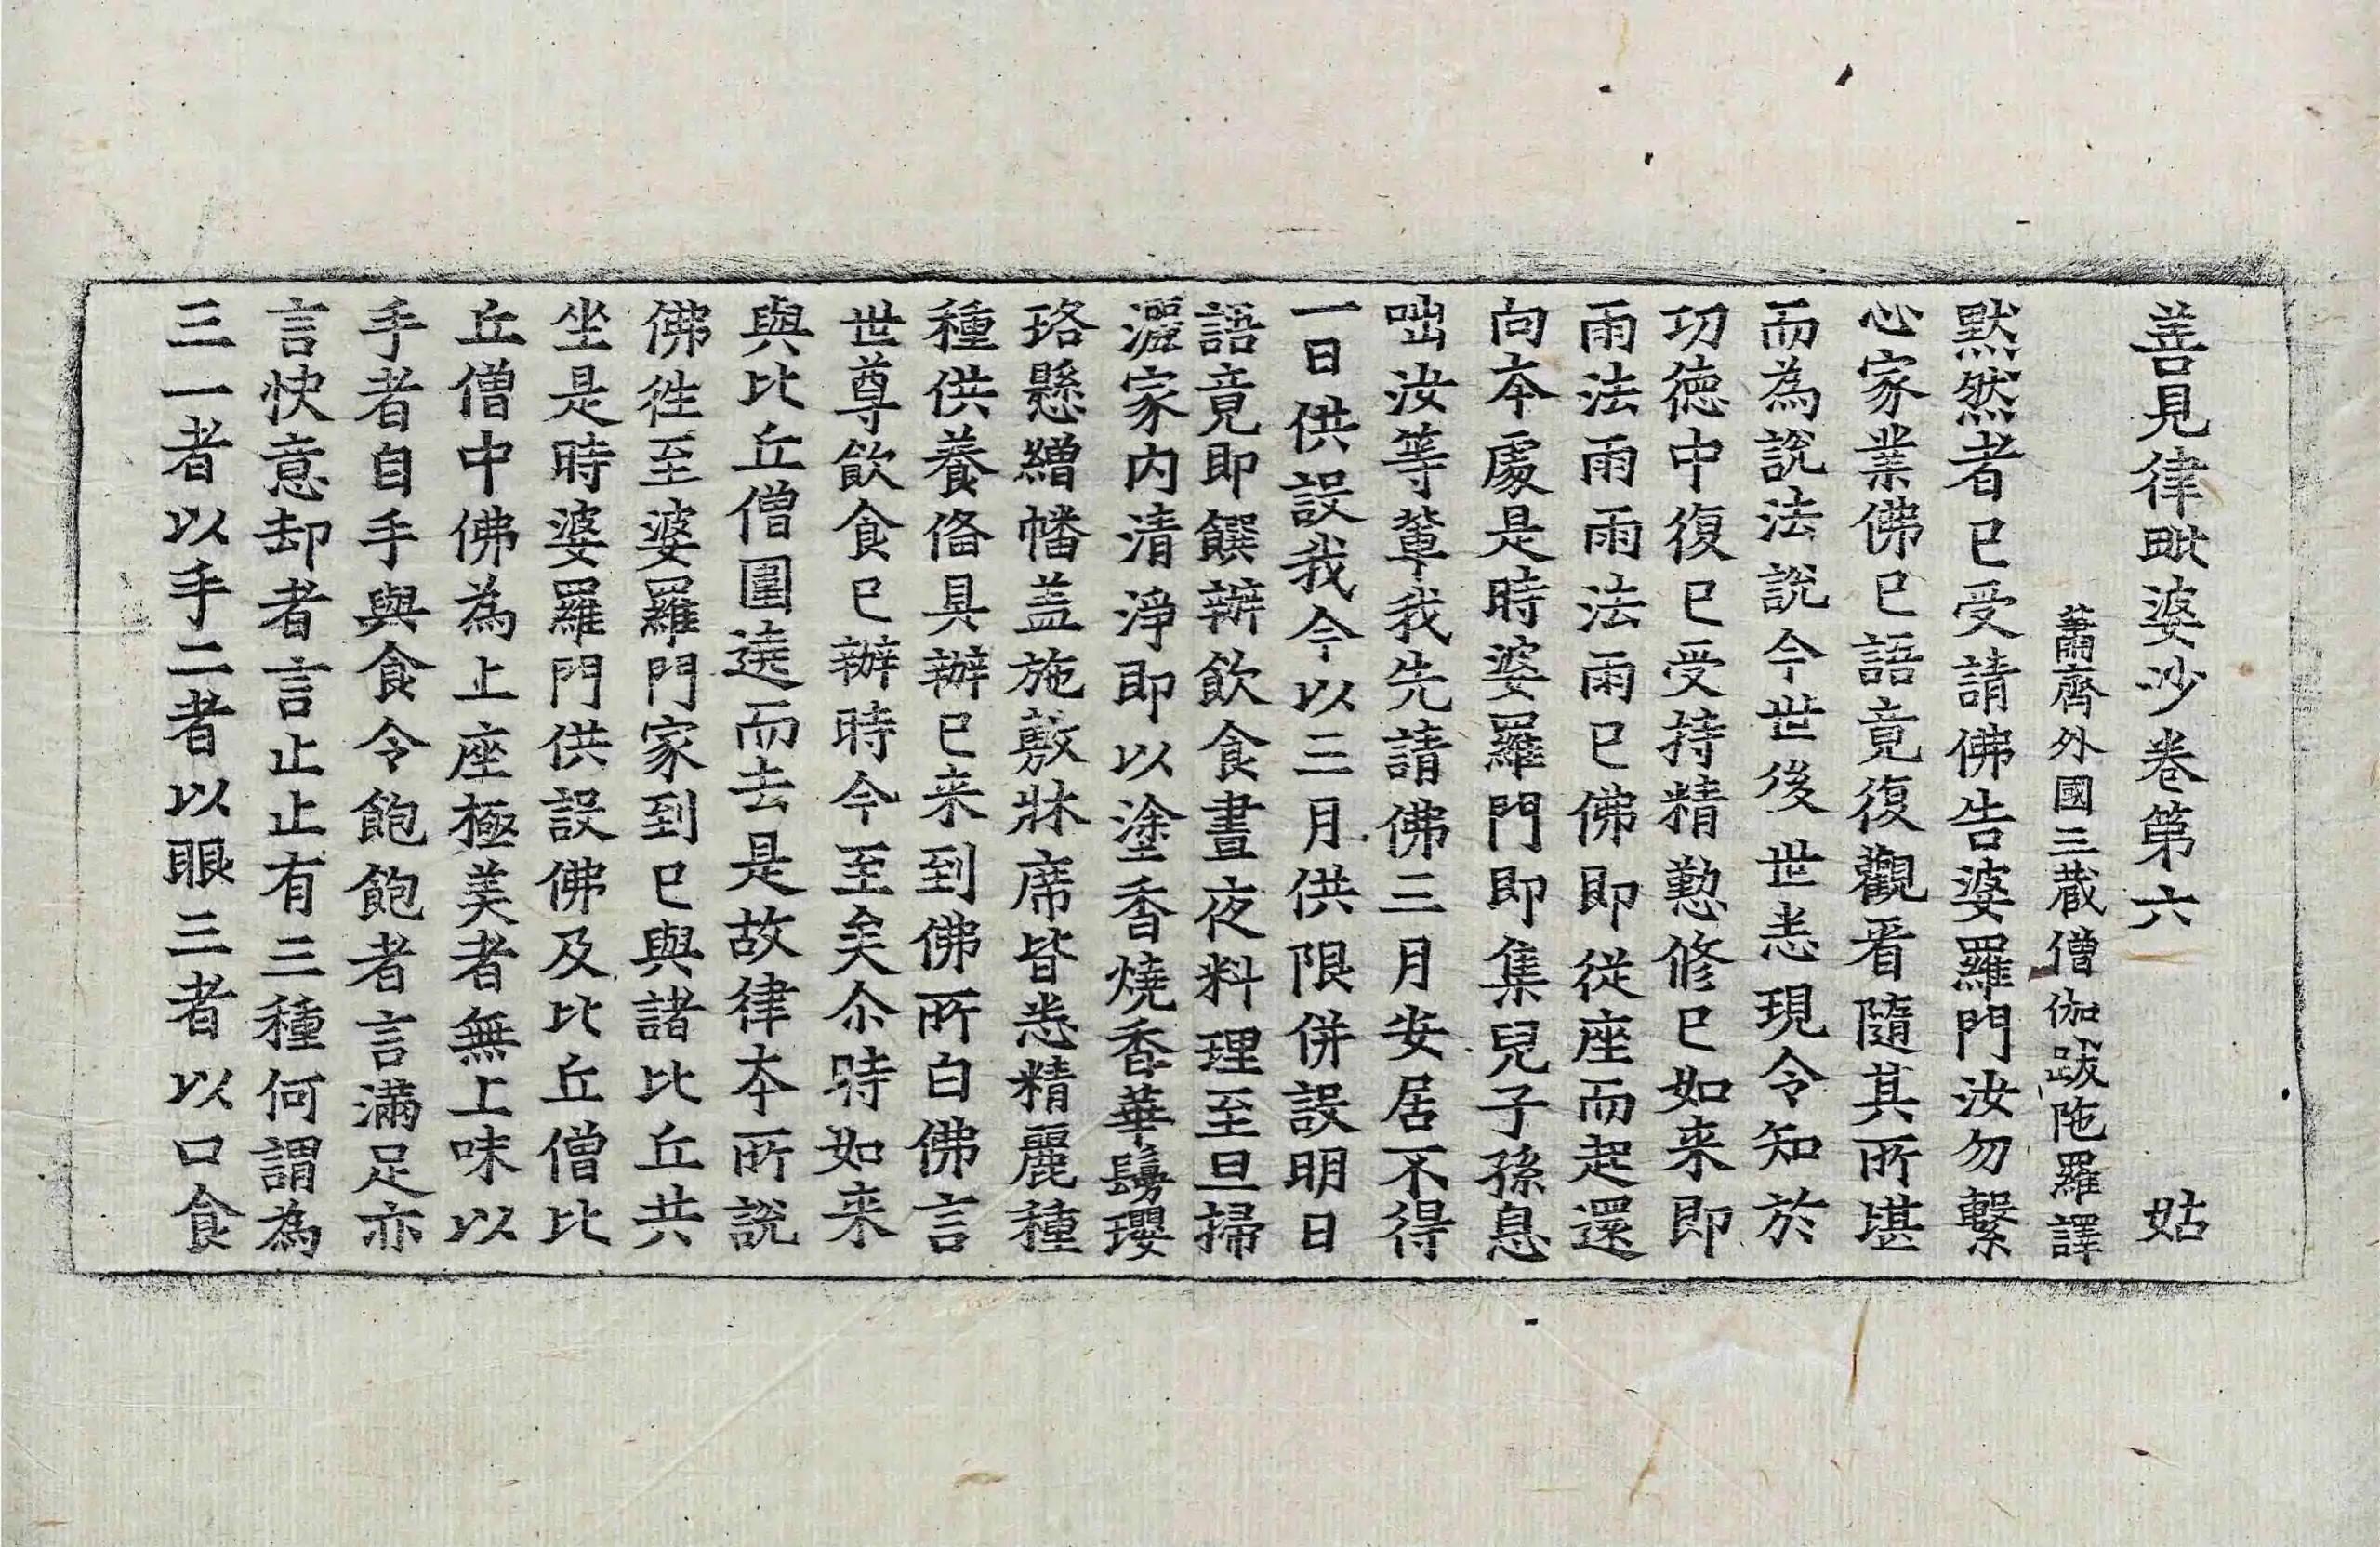 善見律毗婆沙卷第六 姑
蕭齊外國三蔵僧伽跋陁羅譯
默然者已受請佛告婆羅門汝勿繫
心家業佛已語竟復觀看隨其所堪
而為說法說今世後世悉現令知於
功德中復已受持精懃修已如来即
雨法雨雨法雨已佛即從座而起還
向夲處是時婆羅門即集兒子孫息
咄汝等輩我先請佛三月安居不得
一日供設我今以三月供限併設明日
語竟即饌辦飲食晝夜料理至旦掃
灑家内清淨即以塗香燒香華鬘瓔
珞懸繒幡盖施敷牀席皆悉精麗種
種供養俻具辦已来到佛所白佛言
世尊飲食已辦時今至矣尒時如来
與比丘僧圍遶而去是故律夲所說
佛徃至婆羅門家到已與諸比丘共
坐是時婆羅門供設佛及比丘僧比
丘僧中佛為上座極美者無上味以
手者自手與食令飽飽者言滿足亦
言快意却者言止止有三種何謂為
三一者以手二者以眼三者以口食